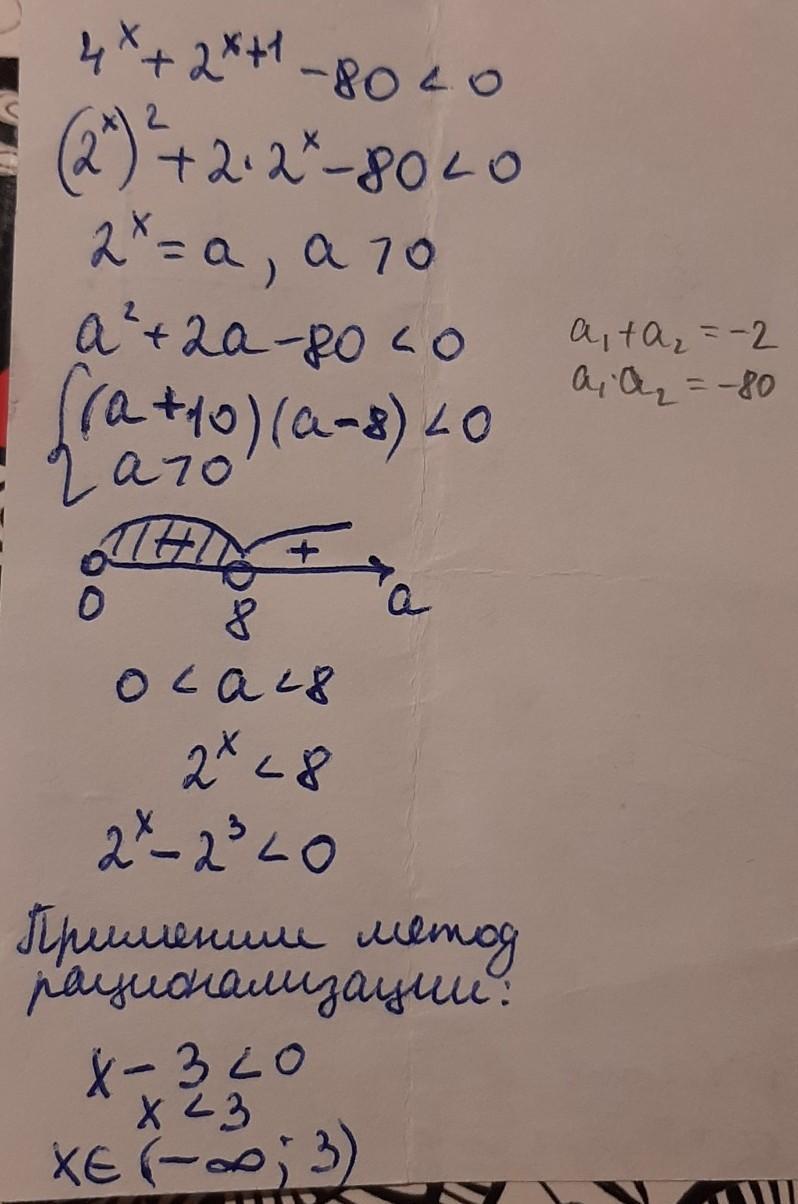 4ˣ + 2ˣ⁺¹ - 80 < 0
(2ˣ)² + 2·2ˣ - 80 < 0
2ˣ = a, a > 0
a² + 2a - 80 < 0
a₁ + a₂ = -2
a₁·a₂ = -80
{(a + 10)(a - 8) < 0
a > 0
- +
0 8 a
0 < a < 8
2ˣ < 8
2ˣ - 2³ < 0
Применим метод
рационализации:
x - 3 < 0
x < 3
x ∈ (-∞; 3)